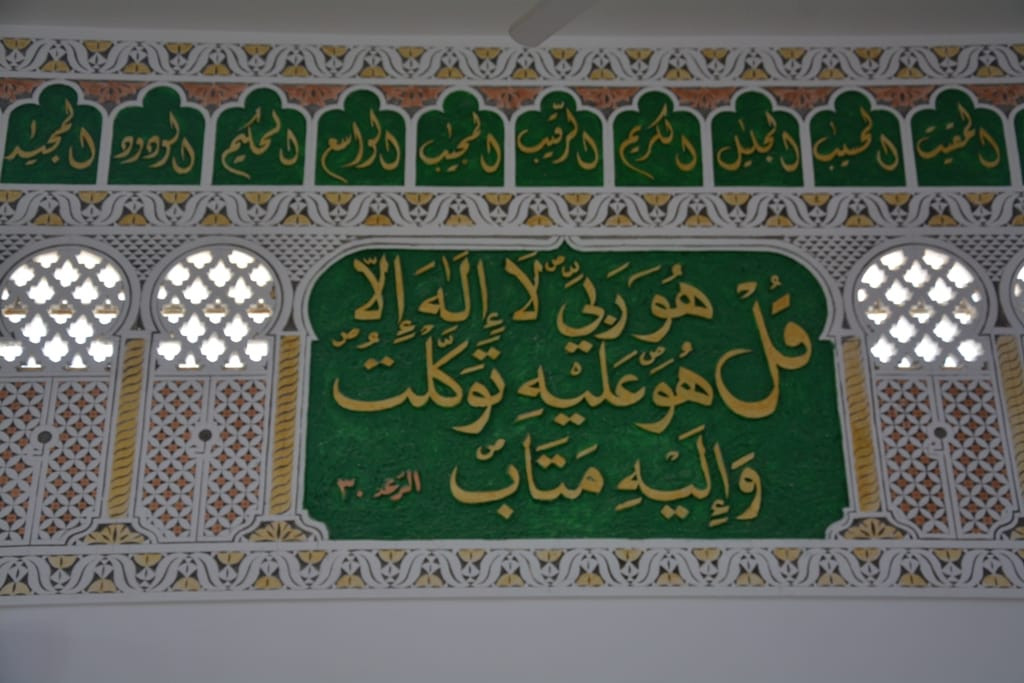 المقيت الحسيب الجليل الكريم الرقيب المجيب الواسع الحكيم الودود المجيد
قُلْ هُوَ رَبِّي لَا إِلَٰهَ إِلَّا
هُوَ عَلَيْهِ تَوَكَّلْتُ
وَإِلَيْهِ مَتَابِ
الرعد ٣٠